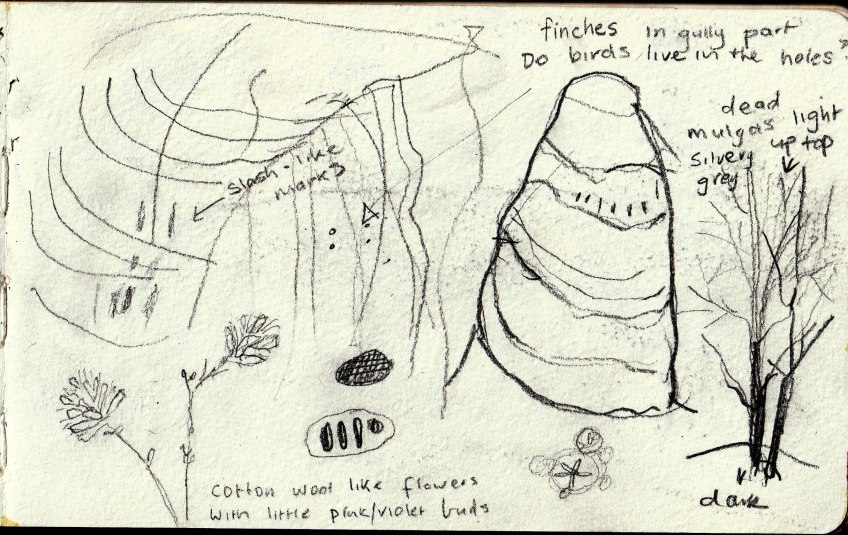 finches in gully part
Do birds live in the holes?
dead
mulgas
silvery
grey
light
up top
slash-like
marks
cotton wool like flowers
with little pink/violet buds
dark
r
r